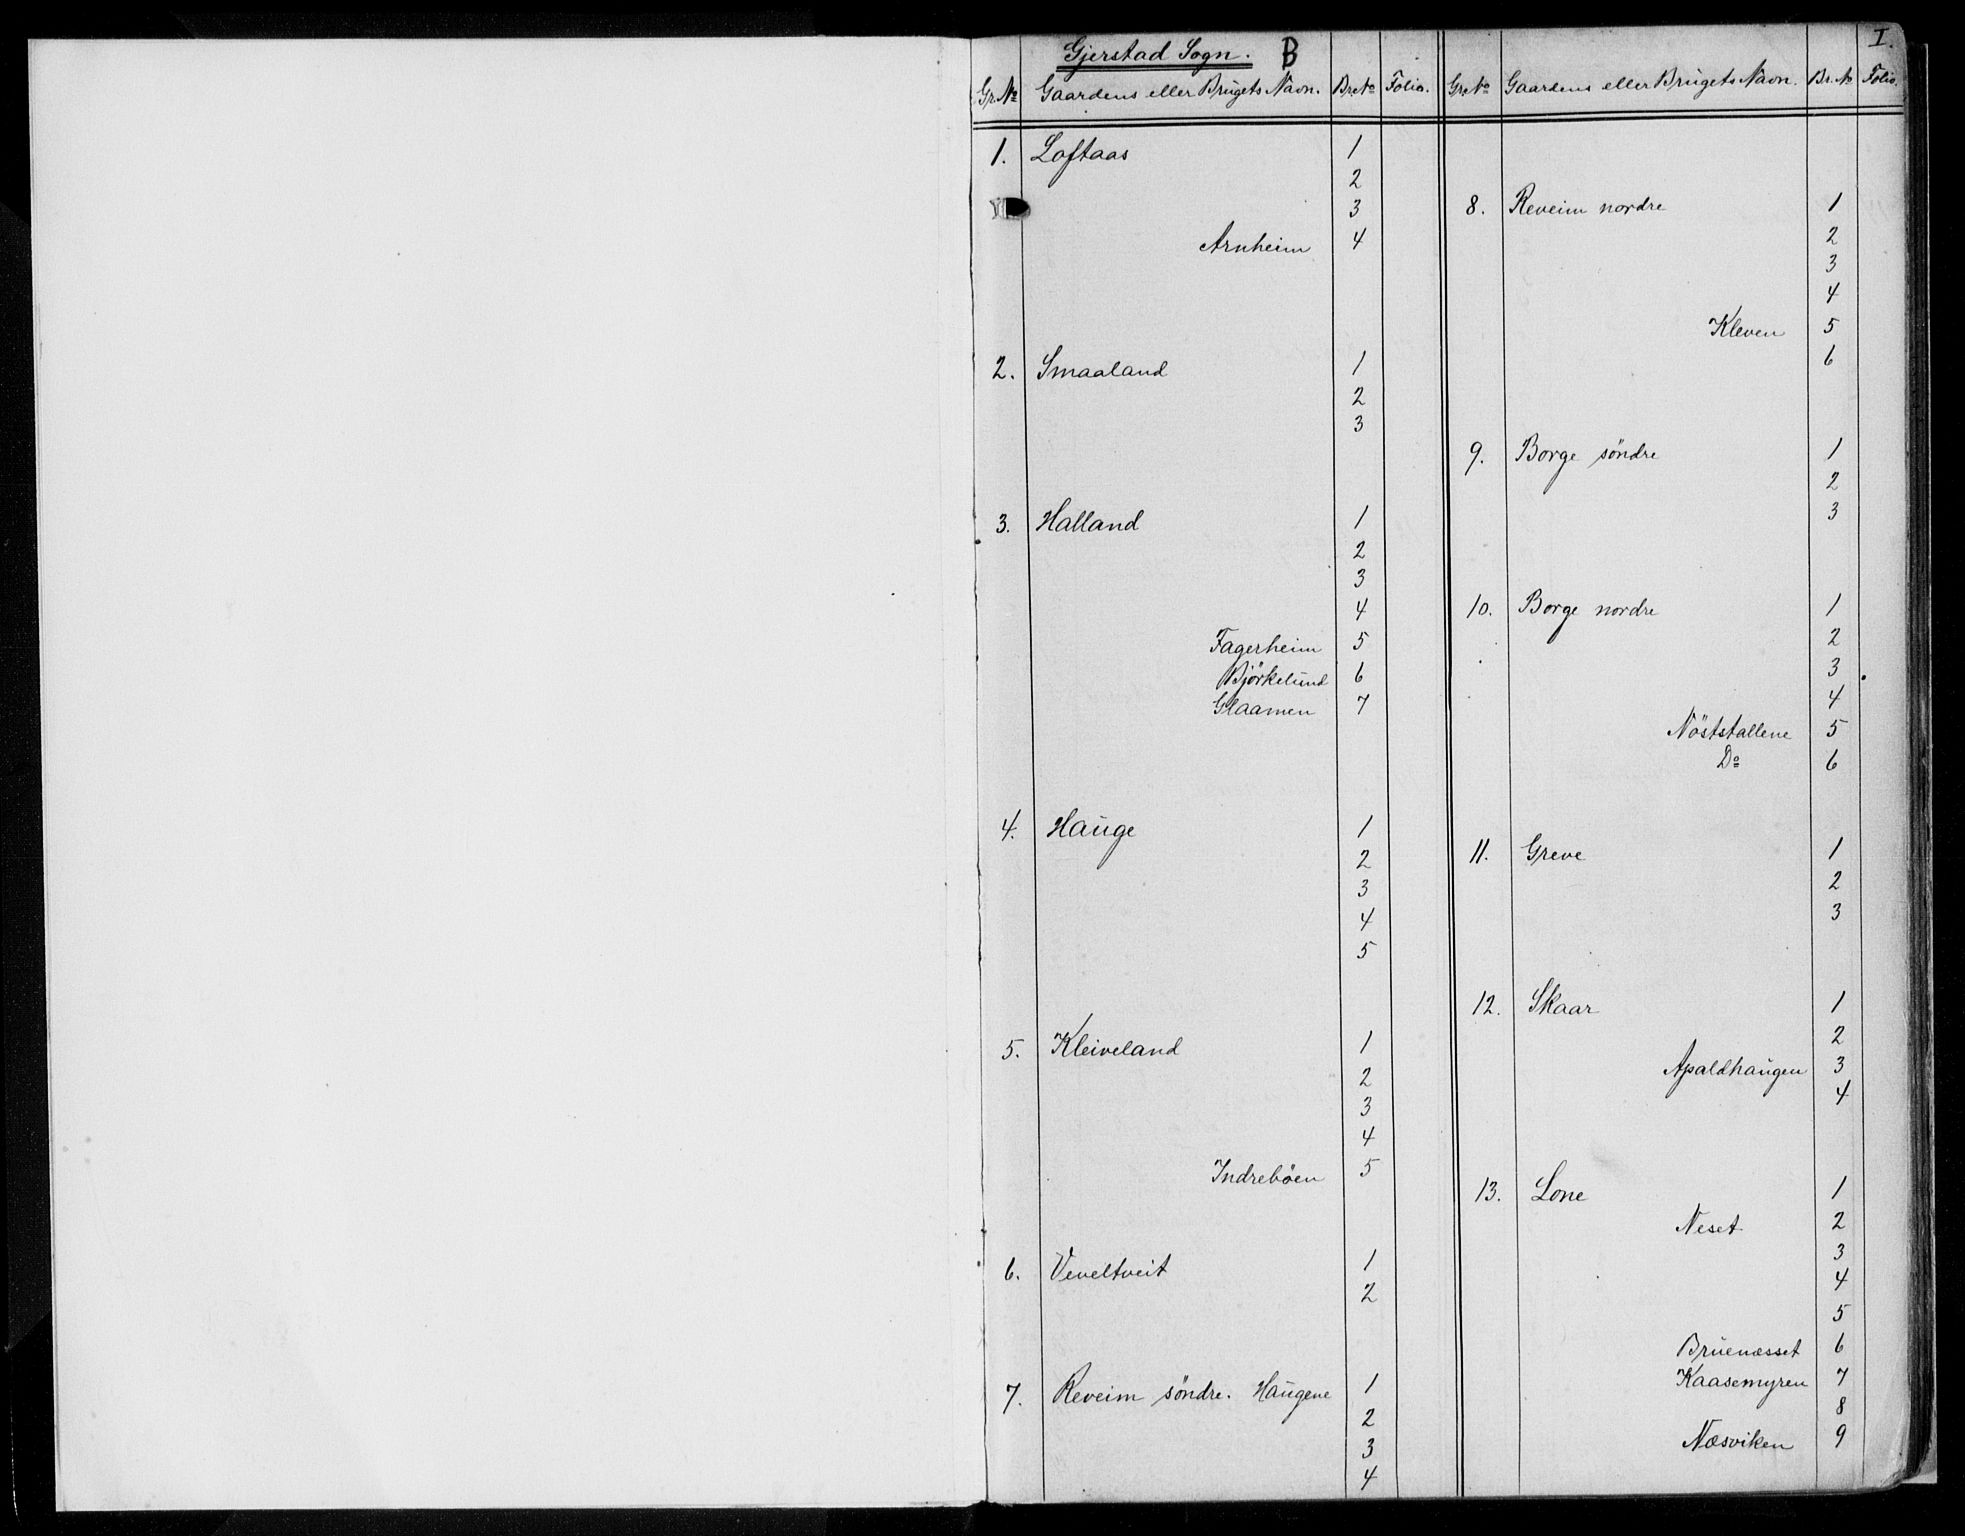 I.
Gjerstad Sogn. B
Gr.No Gaardens eller Brugets Navn. Br.No Folio.
1. Loftaas 1
2
3
Arnheim 4
2. Smaaland 1
2
3
3. Halland 1
2
3
4
Fagerheim 5
Björkelund 6
Glaamen 7
4. Hauge 1
2
3
4
5
5. Kleiveland 1
2
3
4
Indreböen 5
6. Veveltveit 1
2
7. Reveim söndre. Haugene 1
2
3
4
Gr.No Gaardens eller Brugets Navn. Br.No Folio.
8. Reveim nordre 1
2
3
4
Kleven 5
6
9. Borge söndre 1
2
3
10. Borge nordre 1
2
3
4
Nöststallene 5
Do 6
11. Greve 1
2
3
12. Skaar 1
2
Apaldhaugen 3
4
13. Lone 1
Neset 2
3
4
5
Bruenæsset 6
Kaasemyren 7
8
Næsviken 9